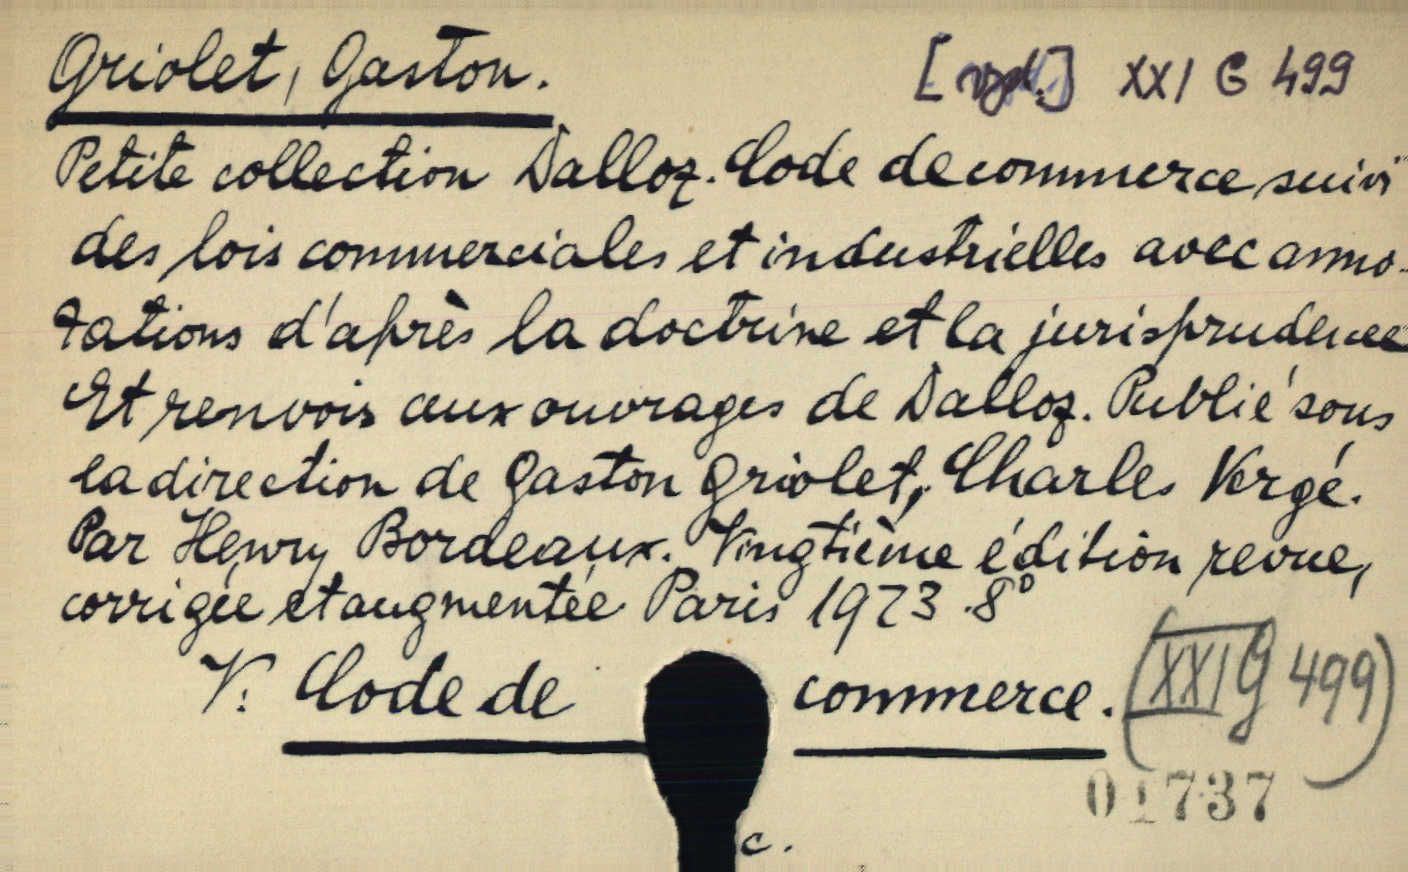 Griolet, Gaston. XXI G 499
Petite collection Dalloz. Code de commerce suivi
des lois commerciales et industrielles avec anno-
tations d'après la doctrine et la jurisprudence
Et renvois aux ouvrages de Dalloz. Publié sous
la direction de Gaston Griolet, Charles Vergé.
Par Henry Bordeaux. Vingtième édition revue,
corrigée et augmentée Paris 1923. 8°
V. Code de commerce. (XXI G 499)
01737
c.